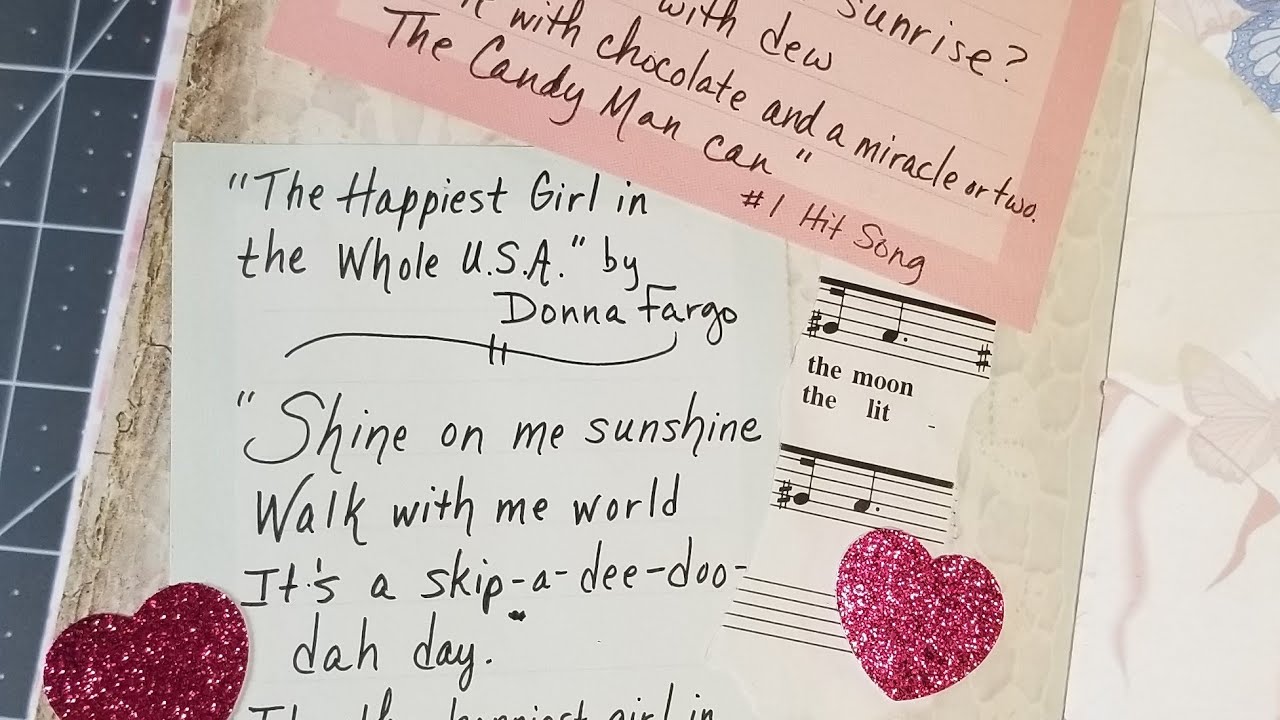 sunrise?
with dew
with chocolate and a miracle or two.
The Candy Man can"
#1 Hit Song
"The Happiest Girl in
the Whole U.S.A." by
Donna Fargo
"Shine on me sunshine
Walk with me world
It's a skip-a-dee-doo-
dah day."
happiest girl in
the moon
the lit -